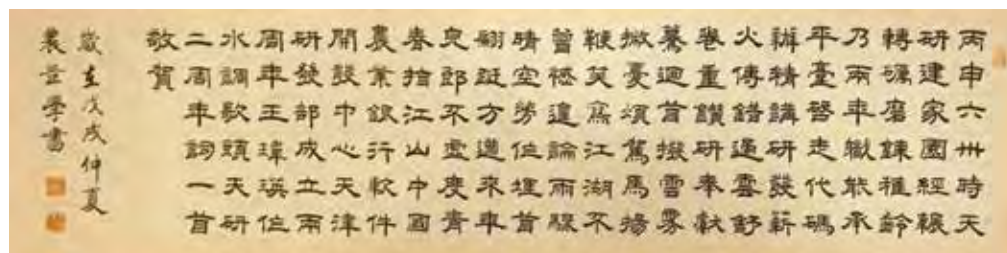 丙申六卅時天
研建家園經輾
轉礪磨鍊
乃兩年職能承
平臺啓走代碼
辦精講研發薪
火傳錯遇雲舒
卷重讚研奉獻
驀迴首撥雲霧
微憂煩駑馬揚
鞭江湖不
曾遑論雨驟
晴空勞位埋首
翩方邀來年
郎不虛度青
春指江山中國
農業銀行軟件
開發中心天津
研發部成立兩
周年王瑋瑛位
水調歌頭天研
二周年詞一首
敬賀
歲在戊戌仲夏
農芸學書